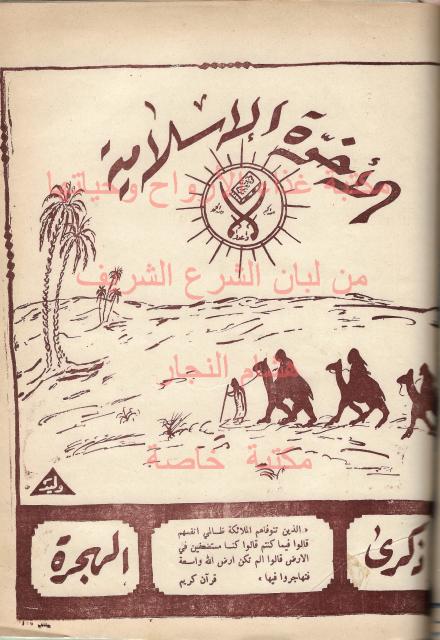 الأخوّة الإسلامية
مكتبة غذاء الأرواح وحياتها
من لبان الشرع الشريف
هشام النجار
مكتبة خاصة
ذكرى
« الذين تتوفاهم الملائكة ظالمي انفسهم
قالوا فيما كنتم قالوا كنا مستضعفين في
الارض قالوا الم تكن ارض الله واسعة
فتهاجروا فيها » قرآن كريم
الهجرة